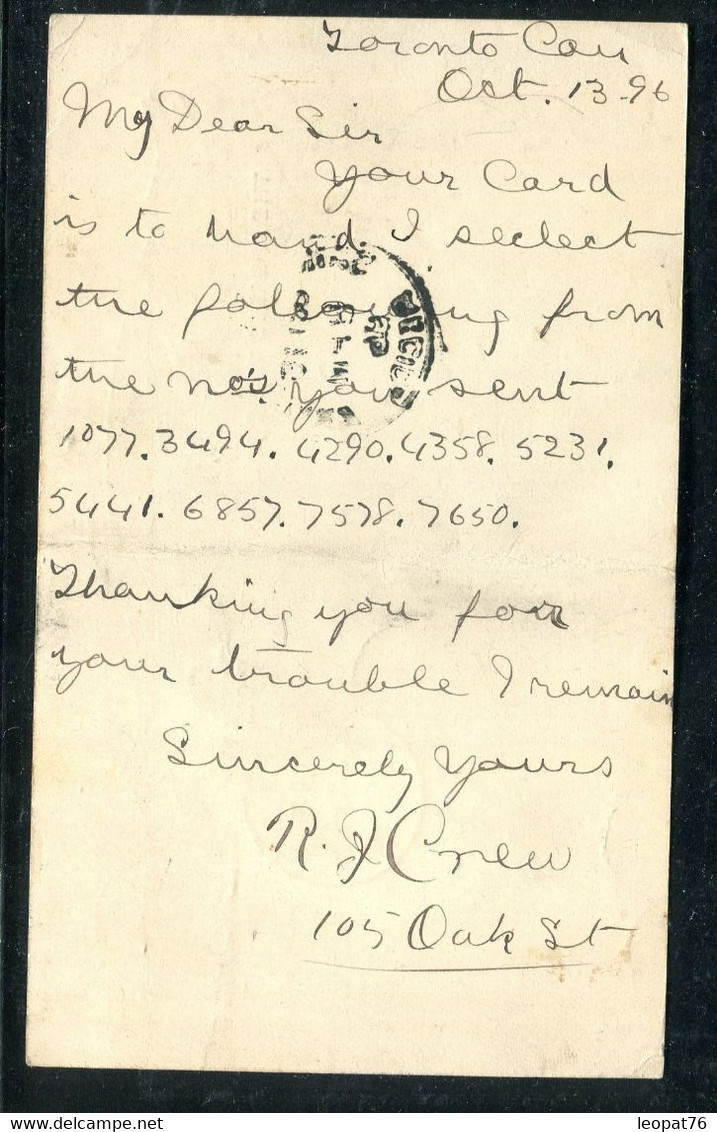 Toronto Can
Oct. 13-96
My Dear Sir
Your Card
is to hand. I seclect
the following from
the no's you sent
1077. 3494. 4290. 4358. 5231.
5441. 6857. 7578. 7650.
Thanking you for
your trouble I remain
Sincerely Yours
R. J Crew
105 Oak St
leopat76